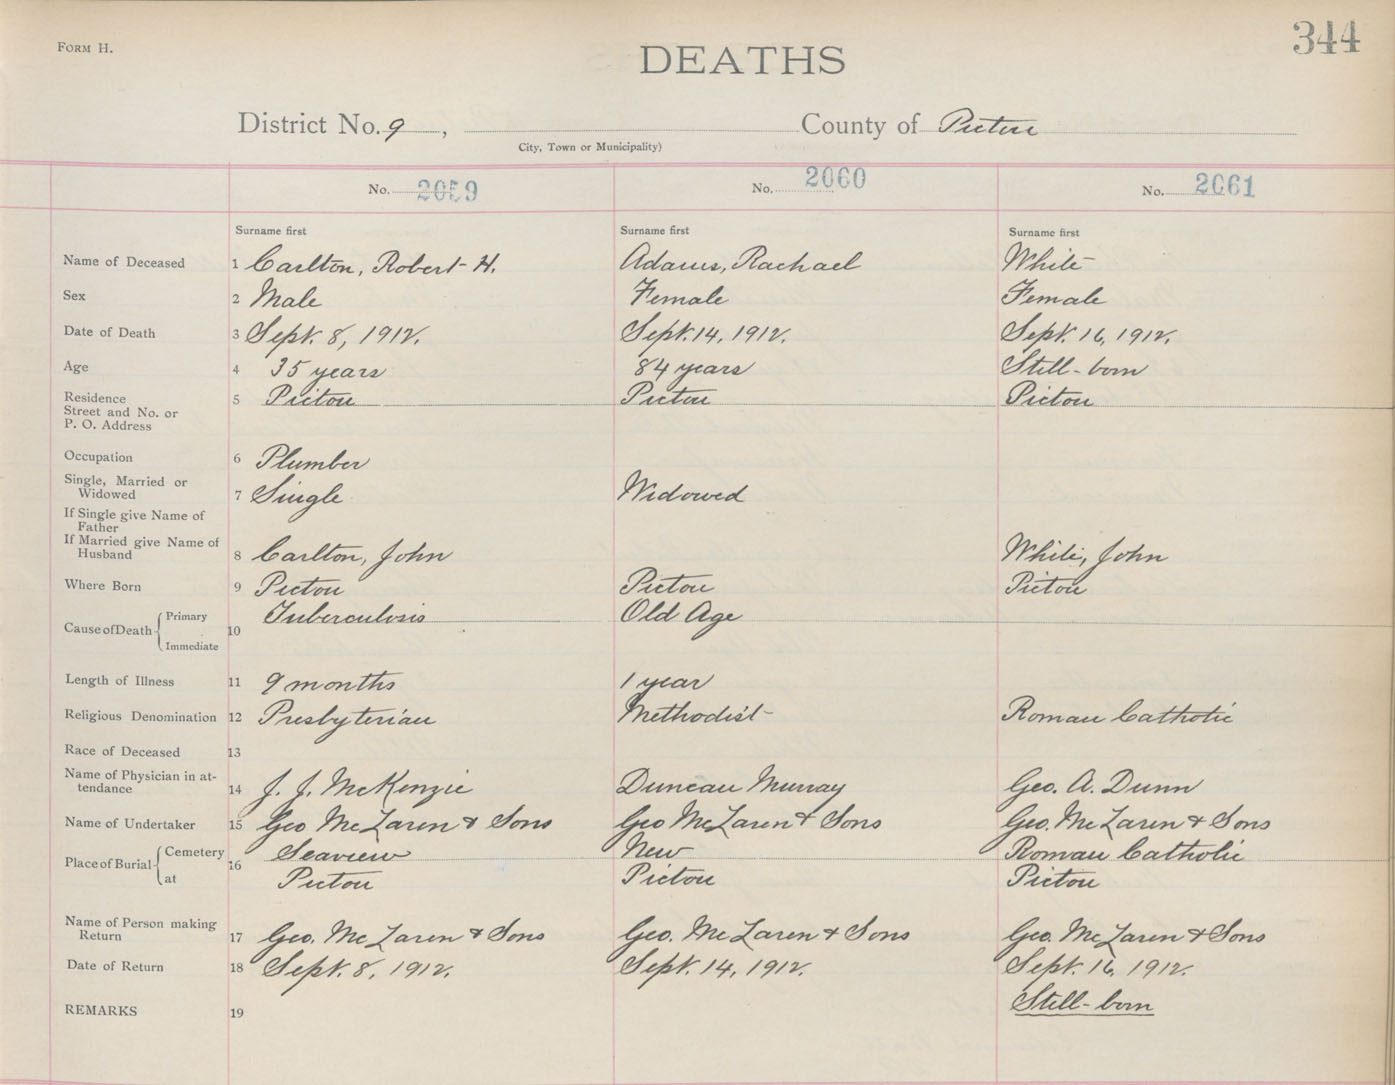 344
FORM H.
DEATHS
District No. 9 , County of Pictou
City, Town or Municipality)
No. 2059 No. 2060 No. 2061
Surname first Surname first Surname first
Name of Deceased 1 Carlton, Robert H. Adams, Rachael White
Sex 2 Male Female Female
Date of Death 3 Sept. 8, 1912. Sept. 14, 1912. Sept. 16, 1912.
Age 4 35 years 84 years Still-born
Residence 5 Pictou Pictou Pictou
Street and No. or
P. O. Address
Occupation 6 Plumber
Single, Married or
Widowed 7 Single Widowed
If Single give Name of
Father
If Married give Name of
Husband 8 Carlton, John White, John
Where Born 9 Pictou Pictou Pictou
Cause of Death Primary Tuberculosis Old Age
10
Immediate
Length of Illness 11 9 months 1 year
Religious Denomination 12 Presbyterian Methodist Roman Catholic
Race of Deceased 13
Name of Physician in at-
tendance 14 J. J. McKenzie Duncan Murray Geo. A. Dunn
Name of Undertaker 15 Geo McLaren & Sons Geo McLaren & Sons Geo. McLaren & Sons
Place of Burial Cemetery 16 Seaview New Roman Catholic
at Pictou Pictou Pictou
Name of Person making
Return 17 Geo. McLaren & Sons Geo. McLaren & Sons Geo. McLaren & Sons
Date of Return 18 Sept. 8, 1912. Sept. 14, 1912. Sept. 16, 1912.
REMARKS 19 Still-born